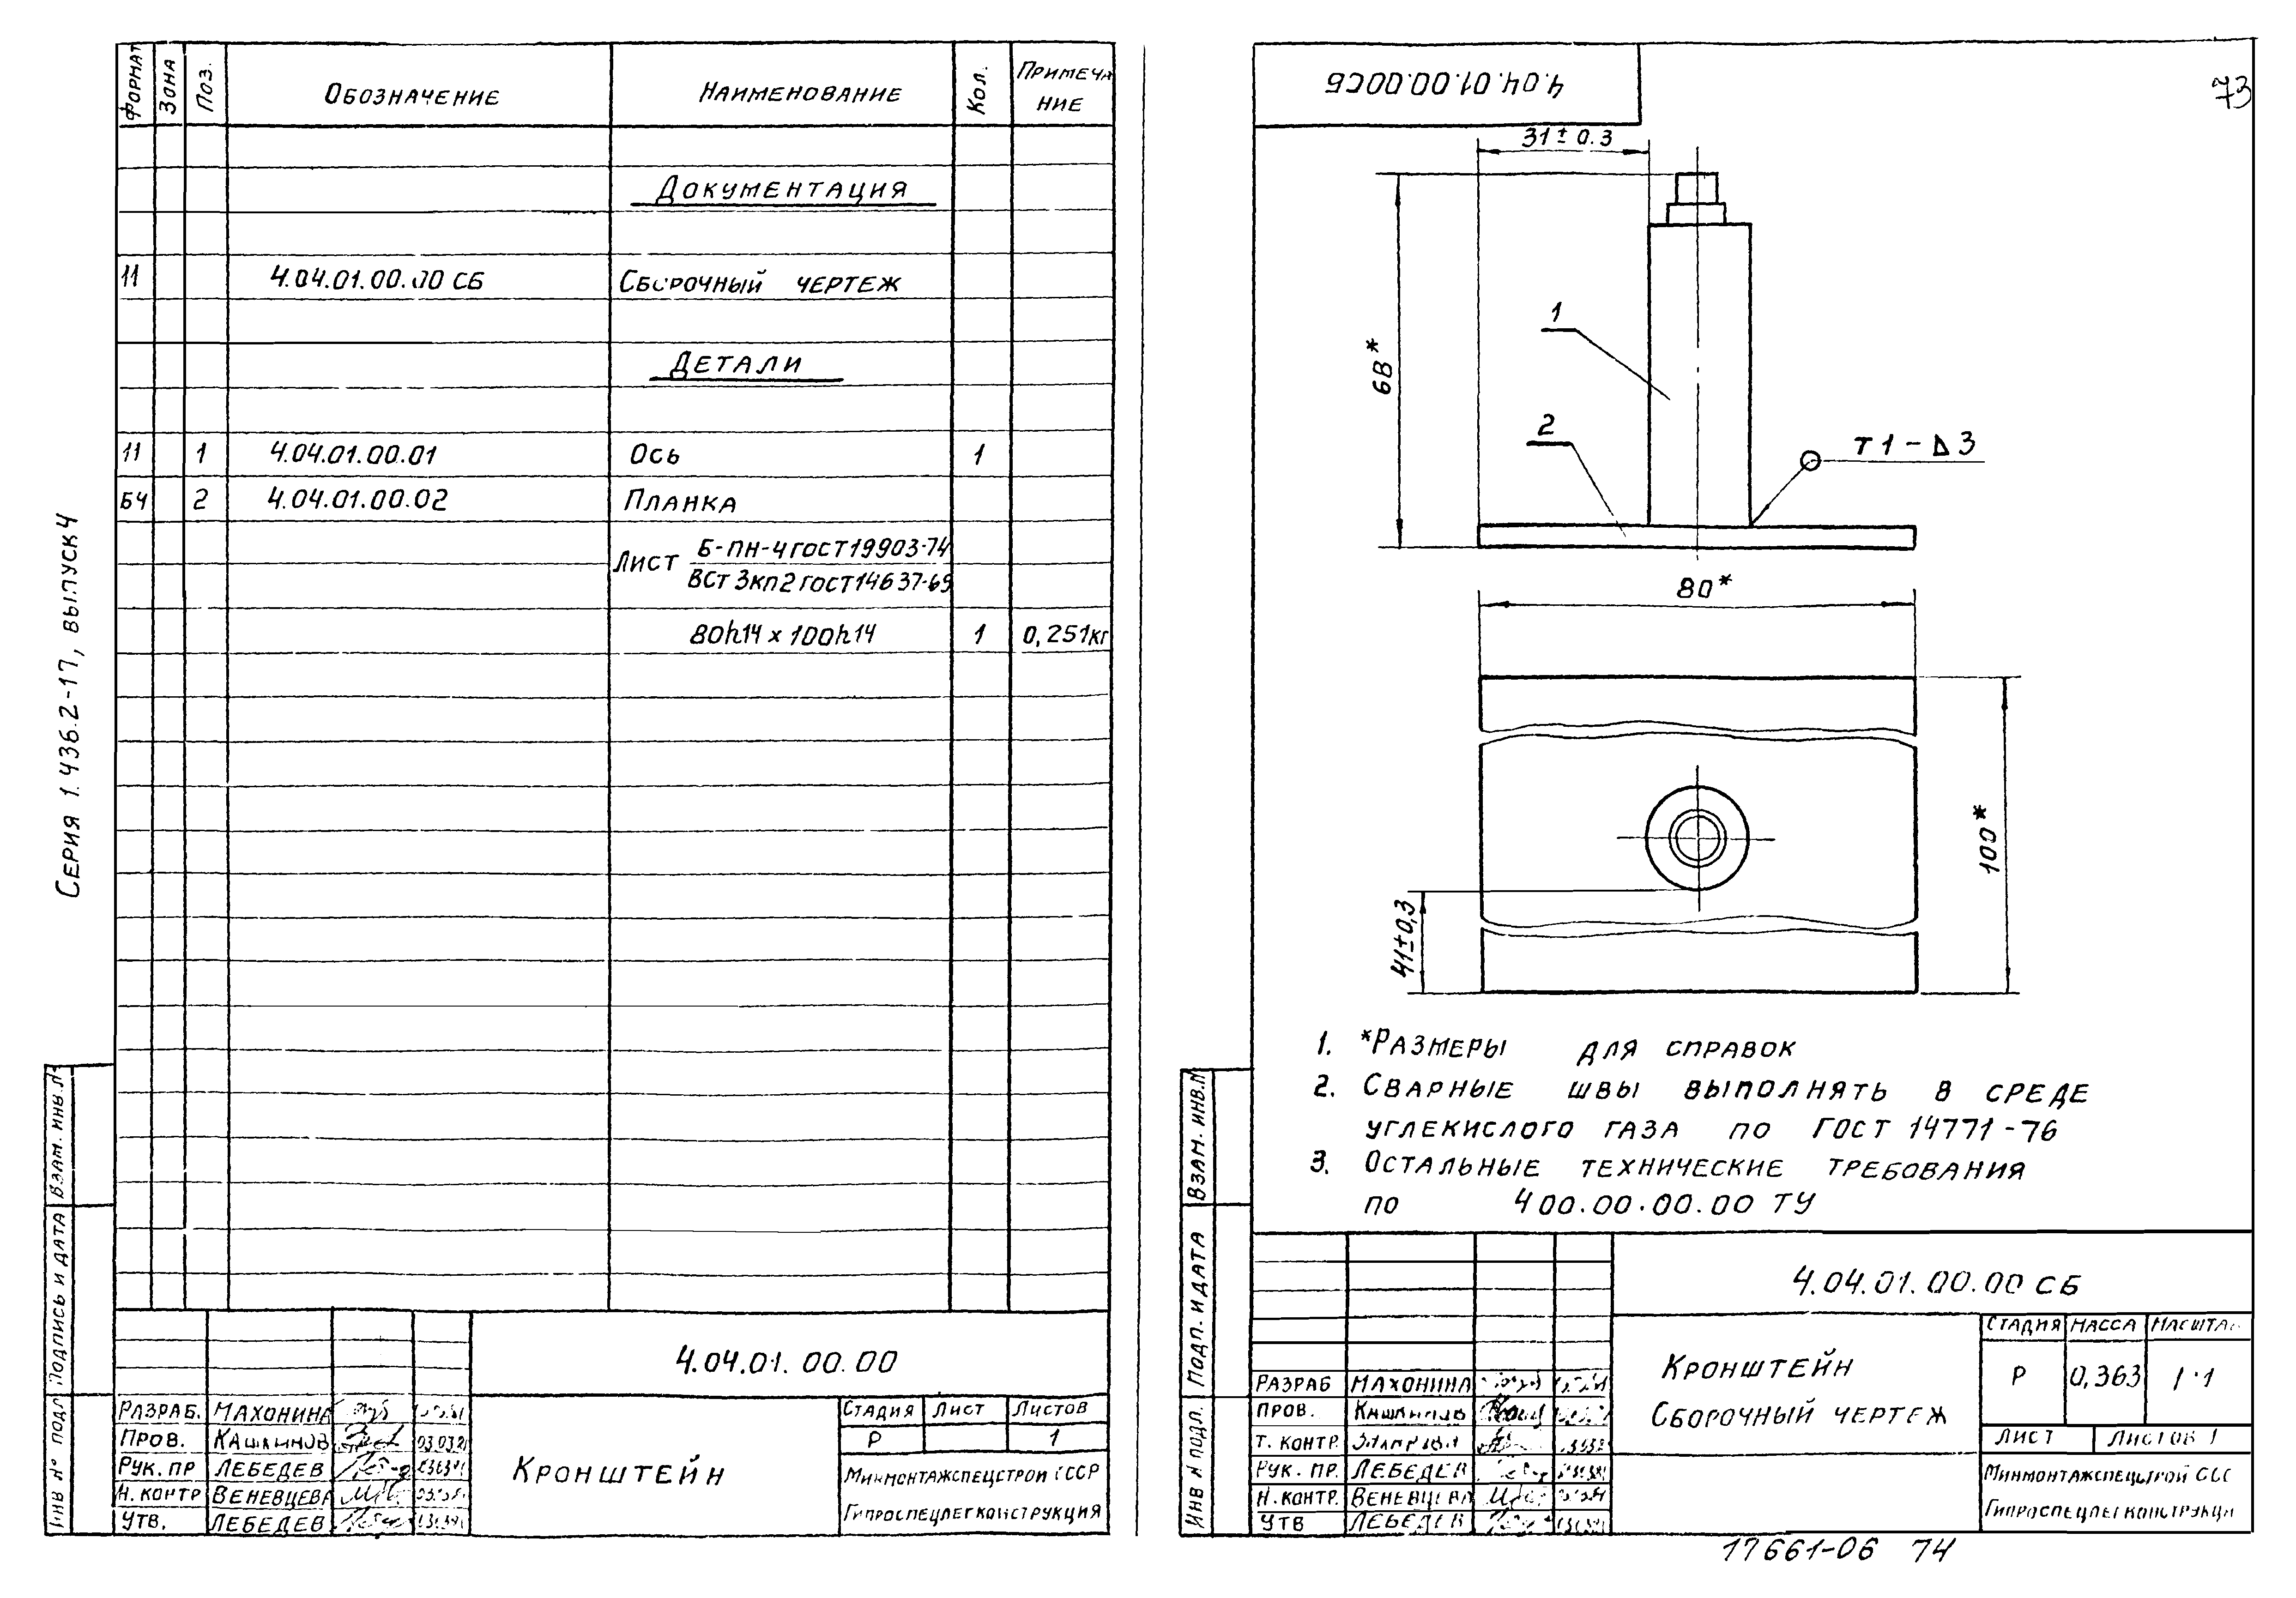 Серия 1.436.2-17, выпуск 4
Формат Зона Поз. Обозначение Наименование Кол. Примеча
ние
Документация
11 4.04.01.00.00 СБ Сборочный чертеж
Детали
11 1 4.04.01.00.01 Ось 1
БЧ 2 4.04.01.00.02 Планка
Лист Б-ПН-4 ГОСТ 19903-74
ВСт3кп2 ГОСТ 14637-69
80h14 х 100h14 1 0,251кг
Взам. инв.
Подпись и дата
Инв № подл
4.04.01.00.00
Разраб. Махонина
Пров. 03.03
Рук. пр Лебедев
Н. контр Веневцева
Утв. Лебедев
Кронштейн
Стадия Лист Листов
Р 1
Минмонтажспецстрой СССР
Гипроспецлегконструкция
4.04.01.00.00СБ
73
31±0.3
68*
1
2
Т1-Δ3
80*
100*
41±0,3
1. *Размеры для справок
2. Сварные швы выполнять в среде
углекислого газа по ГОСТ 14771-76
3. Остальные технические требования
по 400.00.00.00 ТУ
Взам. инв.
Подп. и дата
Инв № подл.
4.04.01.00.00 СБ
Разраб Махонина
Пров.
Т. контр.
Рук. пр. Лебедев
Н. контр.
Утв Лебедев
Кронштейн
Сборочный чертеж
Стадия Масса Масштаб
Р 0,363 1:1
Лист Листов 1
Минмонтажспецстрой ССС
Гипроспецлегконструкци
17661-06 74